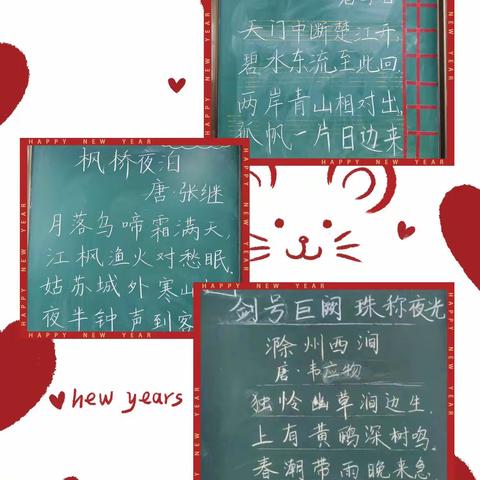 天门中断楚江开,
碧水东流至此回.
两岸青山相对出,
孤帆一片日边来
HAPPY NEW YEAR
HAPPY NEW YEAR
枫桥夜泊
唐·张继
月落乌啼霜满天,
江枫渔火对愁眠.
姑苏城外寒山
夜半钟声到客
HAPPY NEW YEAR
剑号巨阙 珠称夜光
滁州西涧
唐·韦应物
独怜幽草涧边生.
上有黄鹂深树鸣.
春潮带雨晚来急.
hew years